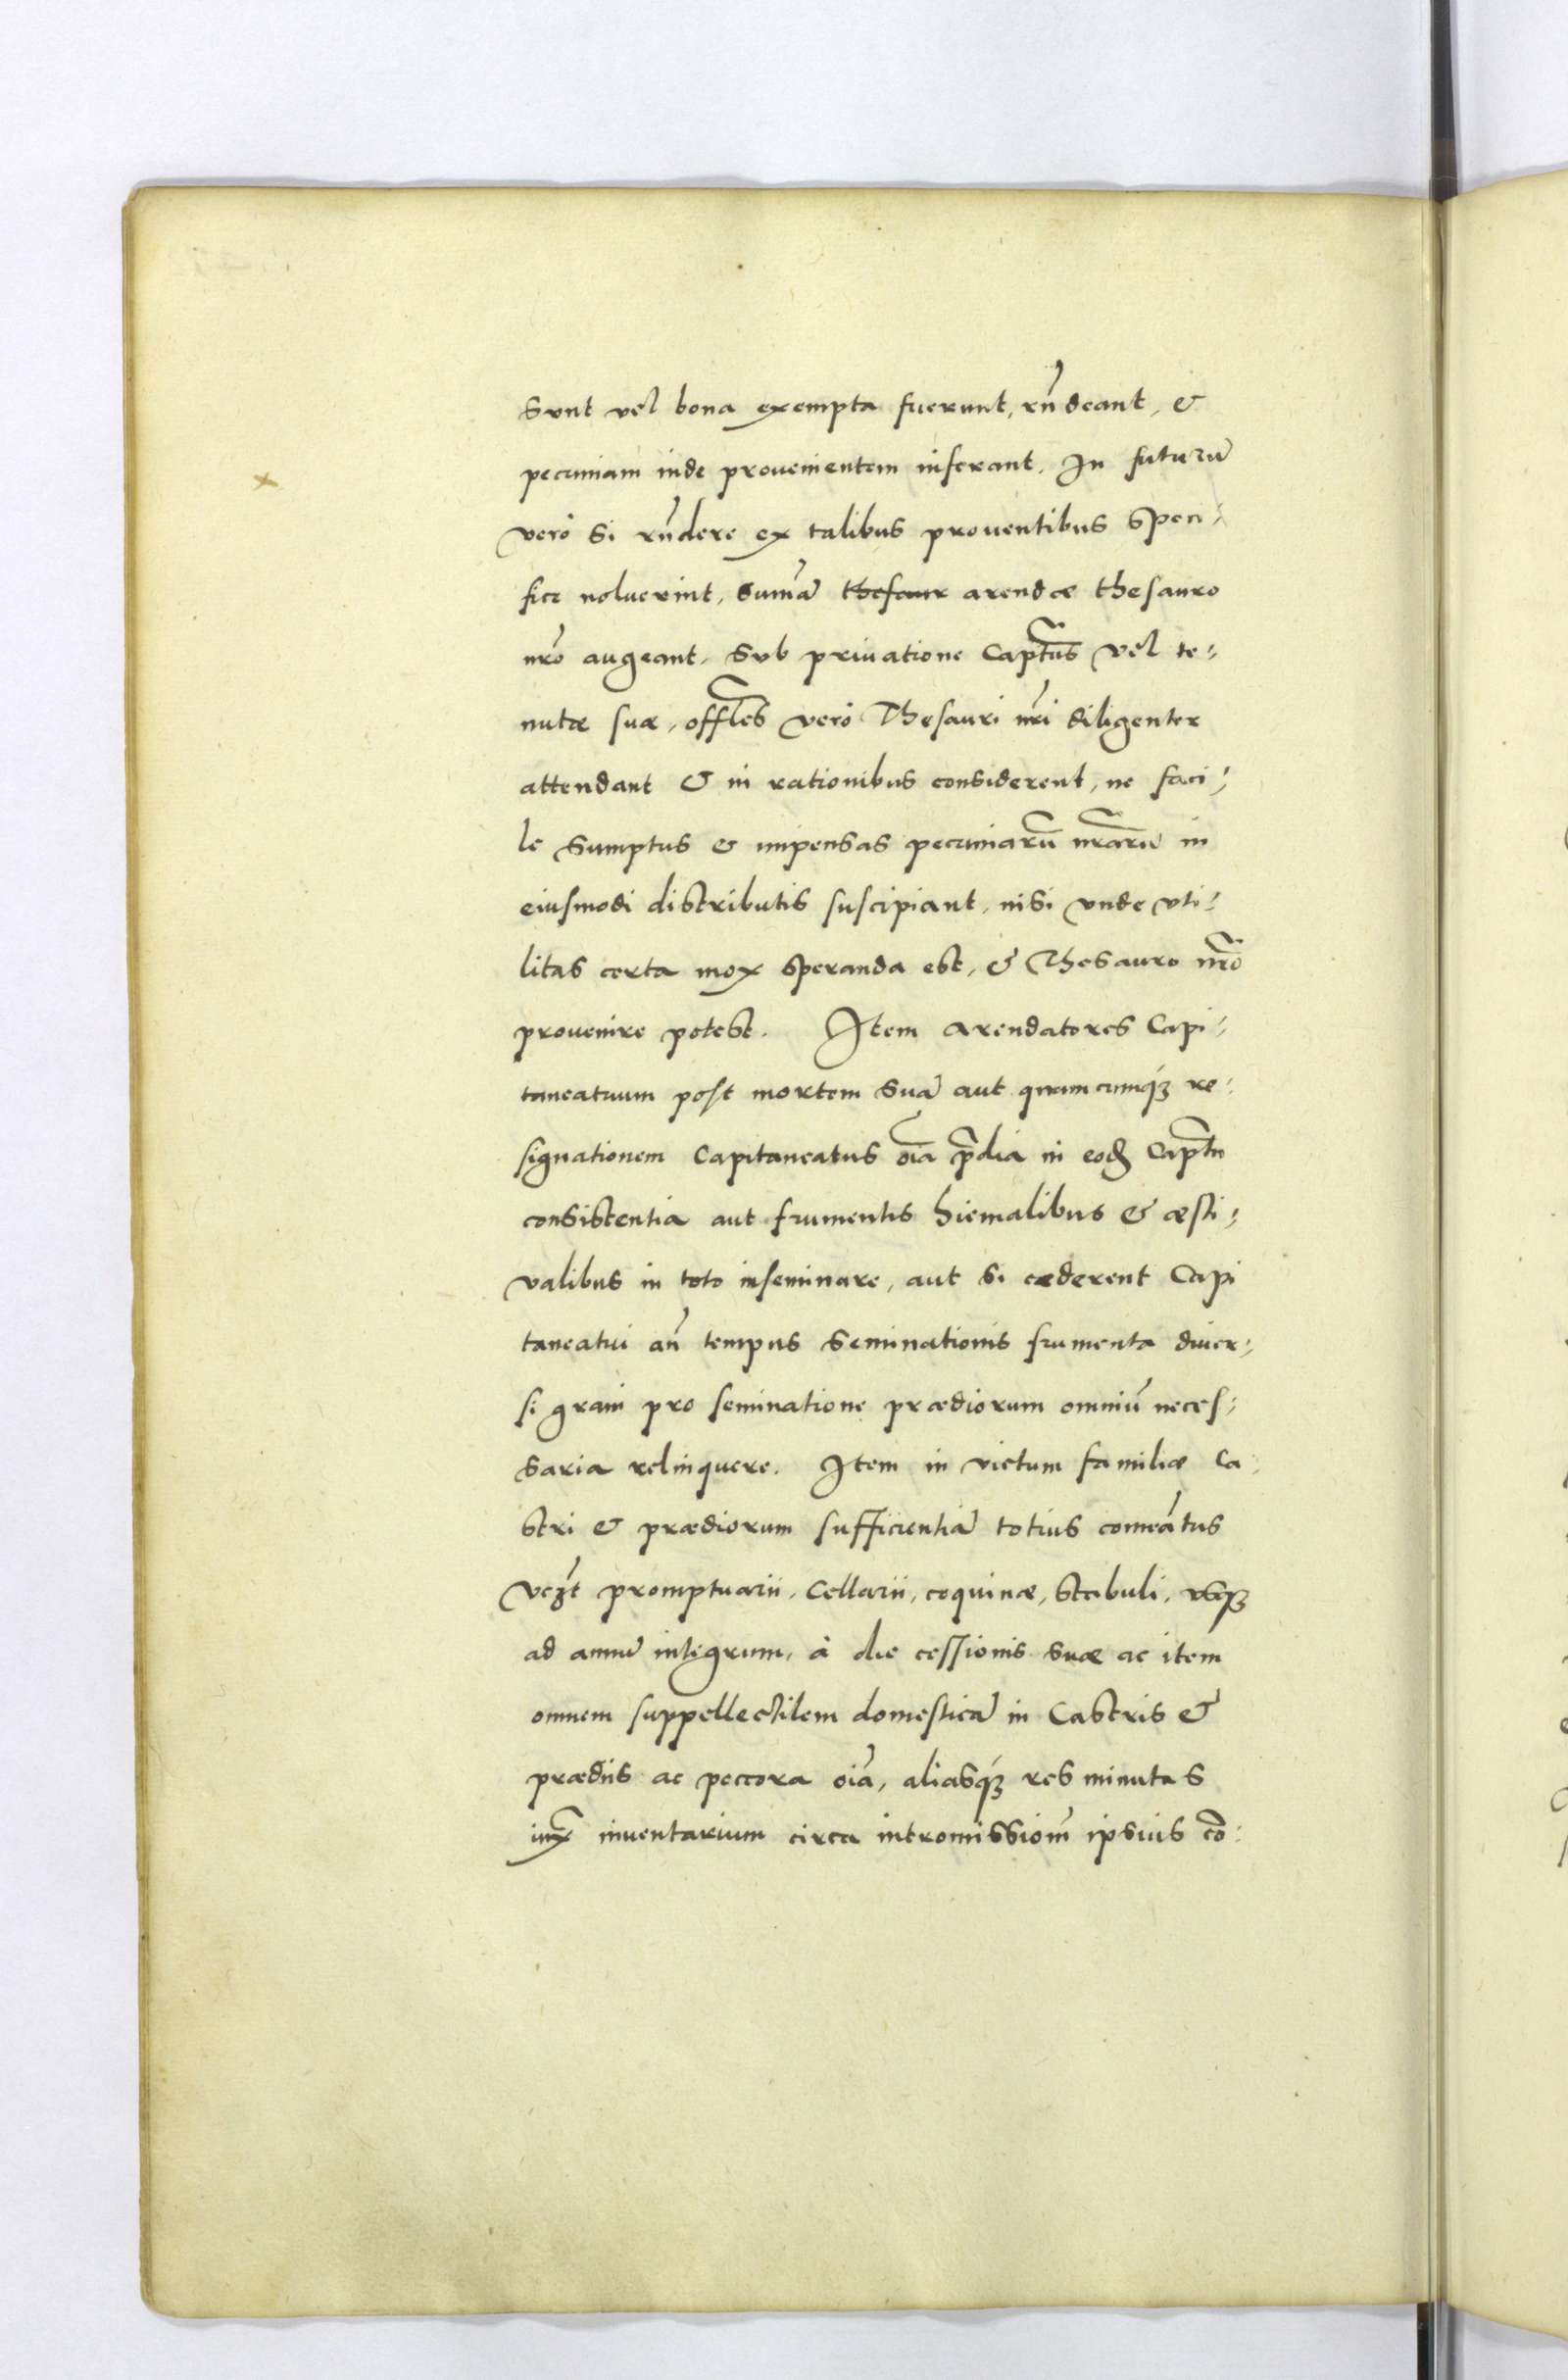 sunt vel bona exempta fuerunt, rñdeant, &
pecuniam inde provenientem inferant. In futurū
verò si rñdere ex talibus proventibus speci-
fice noluerint, sumā̃ thesaur arendæ thesauro
nr̃o augeant, sub privatione Capt̃us vel te-
nutæ suæ, offĩles verò Thesauri nr̃i diligenter
attendant & in rationibus considerent, ne faci-
le sumptus & impensas pecuniarū nr̃arū in
eiusmodi distributis suscipiant, nisi unde uti-
litas certa mox speranda est, & Thesauro nr̃o
provenire potest. Item arendatores Capi-
taneatuum post mortem suā aut quamcumqꝫ re-
signationem Capitaneatus oĩa p̃dia in eod̃ Capt̃u
consistentia aut frumentis hiemalibus & æsti-
valibus in toto inseminare, aut si cæderent Capi
taneatui añ tempus seminationis frumenta diver-
si grani pro seminatione prædiorum omniū neces-
saria relinquere. Item in victum familiæ Ca
stri & prædiorum sufficientiā totius comeātus
vꝫt promptuarii, Cellarii, coquinæ, stabuli, usqꝫ
ad annū integrum, à die cessionis suæ ac item
omnem suppellectilem domesticā in Castris &
prædiis ac peccora oĩa, aliasqꝫ res minutas
iux̃ inventarium circa intromissionm̃ ipsius cõ-